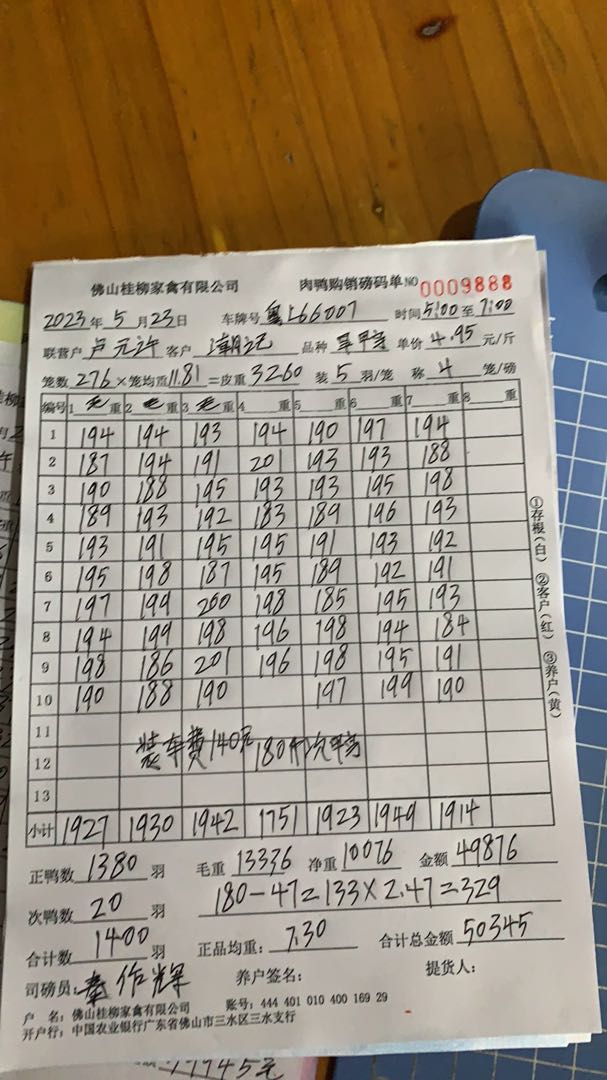 佛山桂柳家禽有限公司 肉鸭购销磅码单 NO 0009888
2023年 5 月 23日 车牌号 粤L66007 时间 5:00 至 7:00
联营户 卢元许 客户 品种 单价 4.95 元/斤
笼数 276 ×笼均重 11.81 =皮重 3260 装 5 羽/笼 称 4 笼/磅
编号 1 毛 重 2 毛 重 3 毛 重 4 重 5 重 6 重 7 重 8 重
1 194 194 193 194 190 197 194
2 187 194 191 201 193 193 188
3 190 188 195 193 193 195 198
4 189 193 192 183 189 196 193
5 193 191 195 195 191 193 192
6 195 198 187 195 189 192 191
7 197 199 200 198 185 195 193
8 194 199 198 196 198 194 184
9 198 186 201 196 198 195 191
10 190 188 190 197 199 190
11
装车费140元 180斤次
12
13
小计 1927 1930 1942 1751 1923 1949 1914
①存根(白) ②客户(红) ③养户(黄)
正鸭数 1380 羽 毛重 13336 净重 10076 金额 49876
次鸭数 20 羽 180-47=133×2.47=329
合计数 1400 羽 正品均重: 7.30 合计总金额 50345
司磅员: 秦作辉 养户签名: 提货人:
户 名: 佛山桂柳家禽有限公司 账号: 444 401 010 400 169 29
开户行: 中国农业银行广东省佛山市三水区三水支行